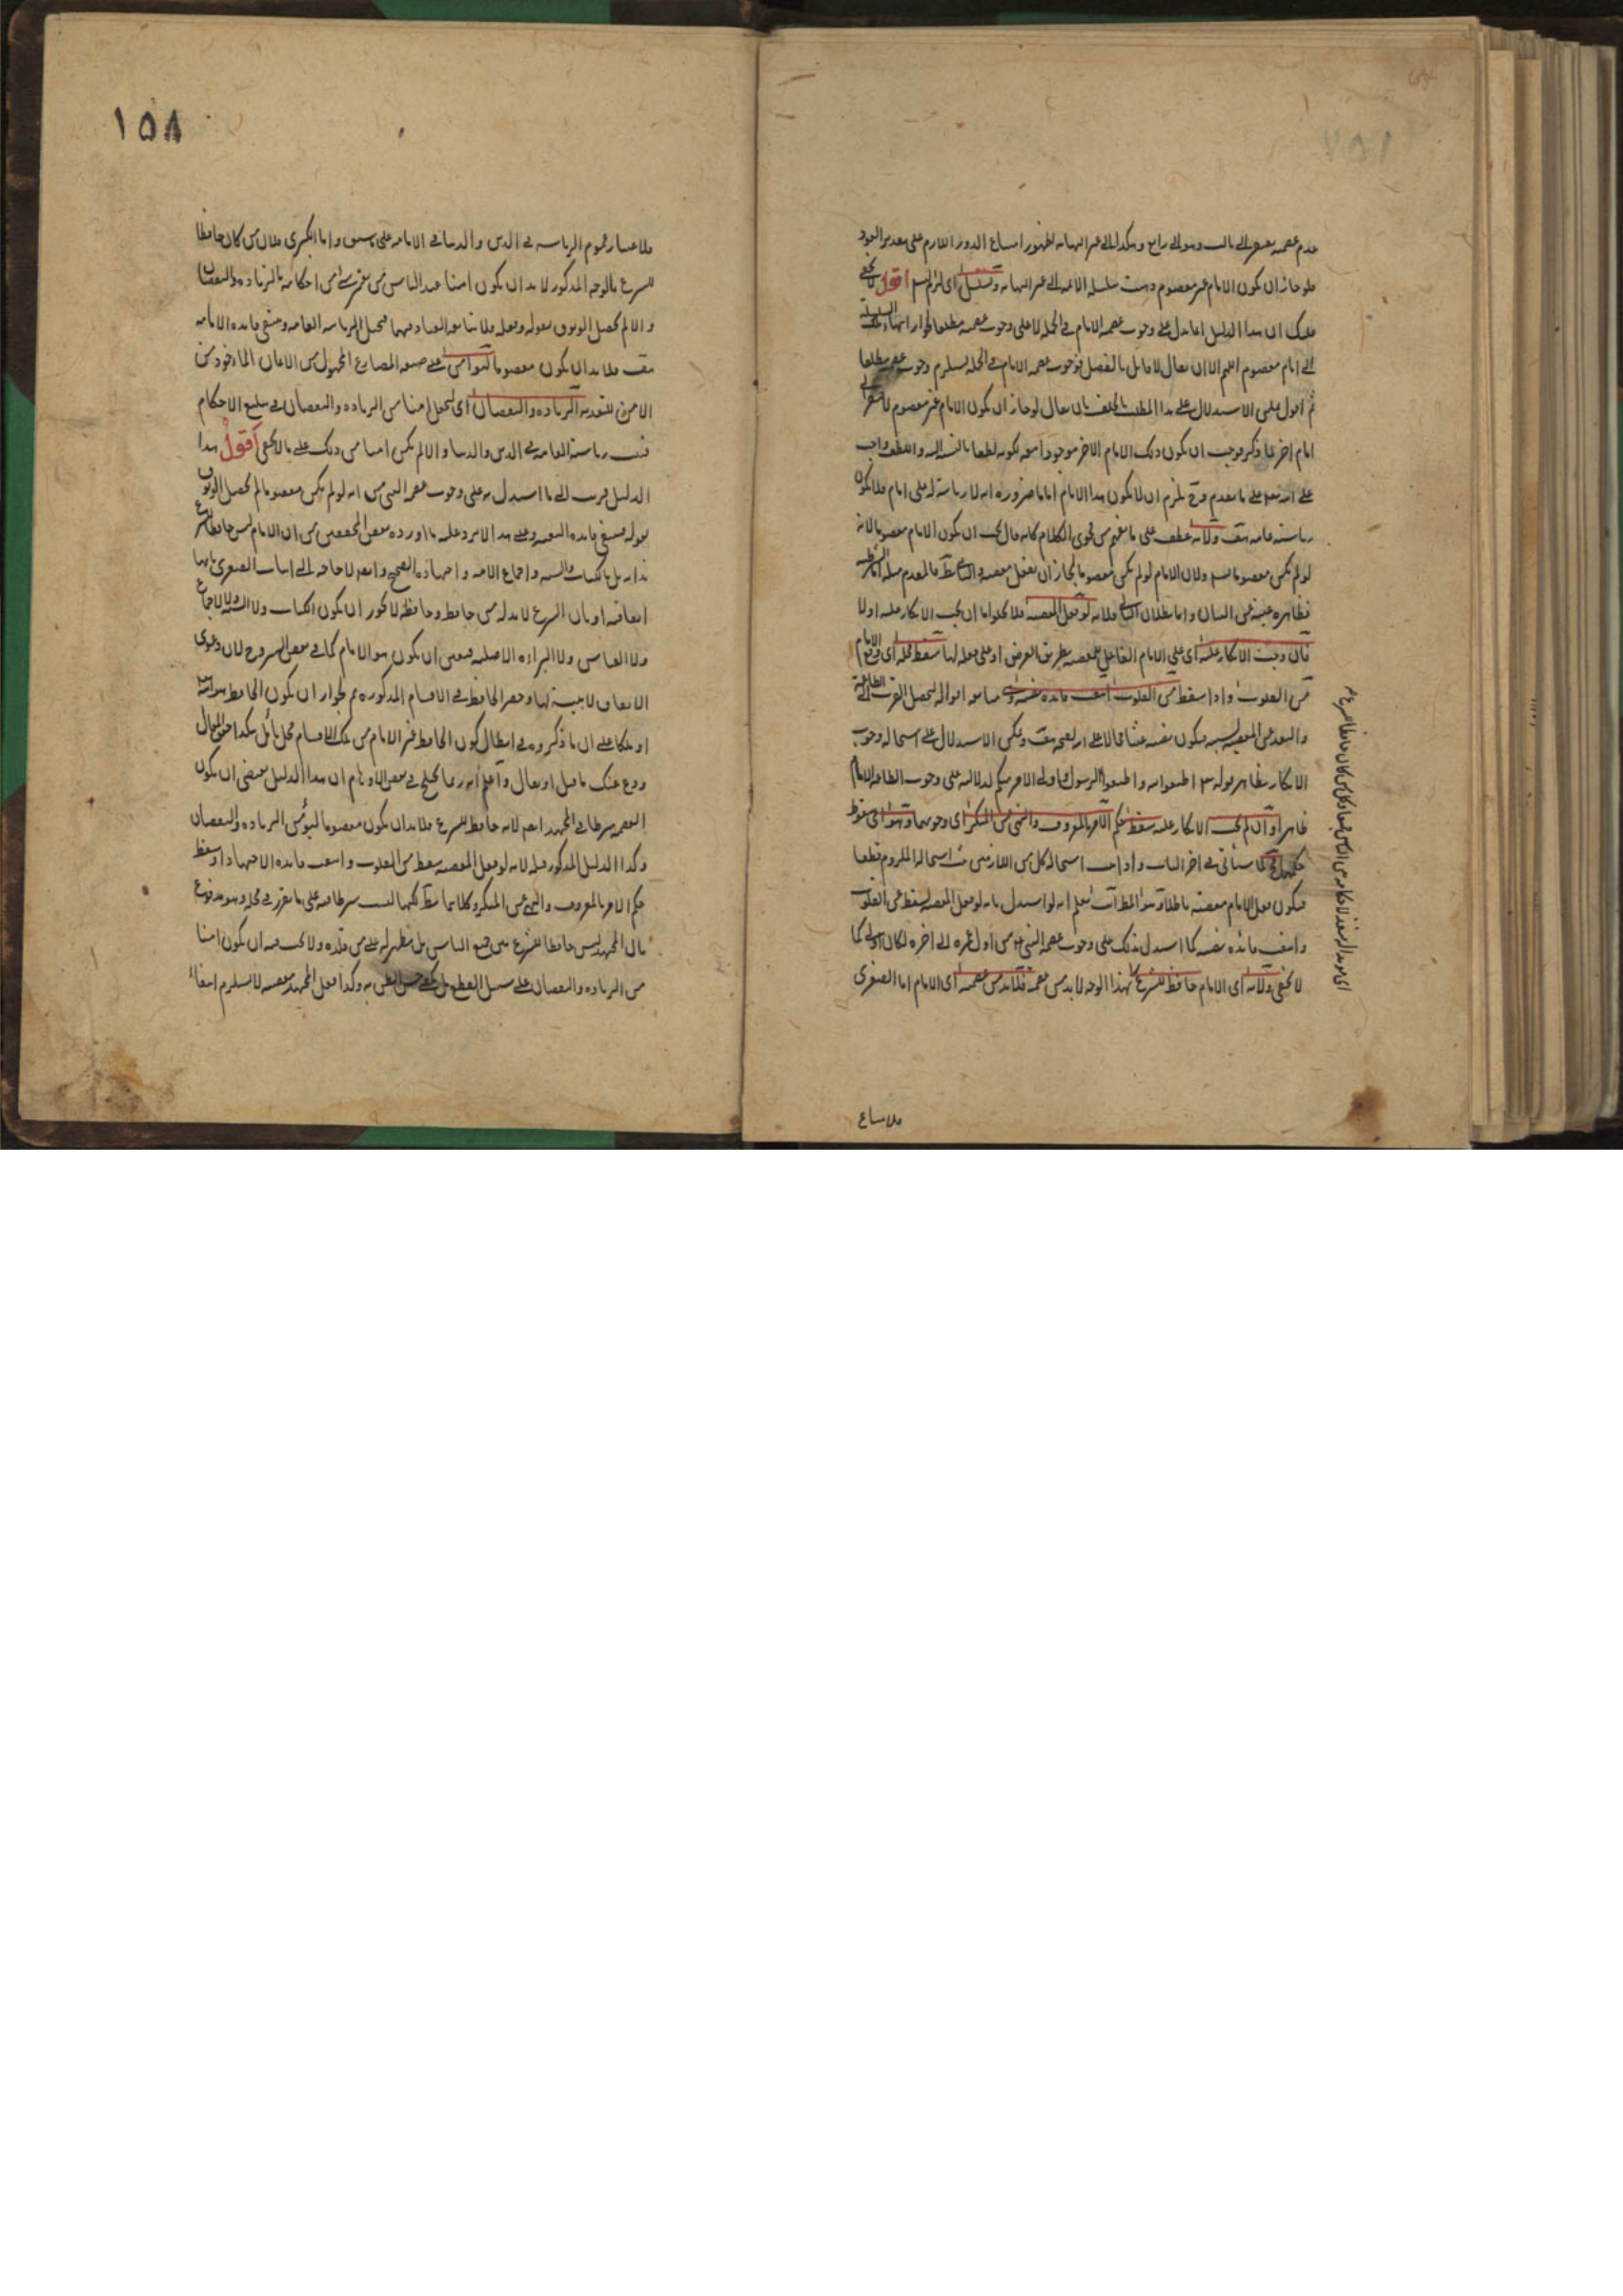 عدم عصمه يفتقر الى ثالث وهو الى رابع وهكذا الى غير النهايه لظهور امتناع الدور اللازم على تقدير العود
فلو جاز ان يكون الامام غير معصوم ذهبت سلسله الائمه الى غير النهايه وتسلسل اى لزم التسلسل اقول لا يخفى
عليك ان هذا الدليل انما يدل على وجوب عصمه الامام فى الجمله لا على وجوب عصمته مطلقا لجواز انتهاء السلسله
الى امام معصوم اللهم الا ان يقال لا قائل بالفصل فوجوب عصمه الامام فى الجمله يستلزم وجوب عصمته مطلقا
ثم اقول يمكن الاستدلال على هذا المطلب بالخلف بان يقال لو جاز ان يكون الامام غير معصوم لافتقر الى
امام اخر لما ذكر فوجب ان يكون ذلك الامام الاخر موجودا معه لكونه لطفا بالنسبه اليه واللطف واجب
على الله تعالى على ما تقدم وح يلزم ان لا يكون هذا الامام اماما ضروره انه لا رياسة له على امام فلا يكون
رياسته عامه هف ولانه عطف على ما يفهم من فحوى الكلام كانه قال يجب ان يكون الامام معصوما لانه
لو لم يكن معصوما تسلسل ولان الامام لو لم يكن معصوما لجاز ان يفعل معصيه والتالى بط فالمقدم مثله اما الشرطيه
فظاهره غنيه عن البيان واما بطلان التالى فلانه لو فعل المعصيه فلا يخلو اما ان يجب الانكار عليه او لا
فان وجب الانكار عليه اى على الامام الفاعل للمعصيه بطريق الفرض او على فعله لها سقط محله اى وقع الامام
من القلوب واذا سقط من القلوب انتفت فائده نصبه وهى متابعه اقواله ليحصل القرب الى الطاعه
والبعد عن المعصيه بسببه فيكون نصبه عبثا محالا على الله لقبحه هف ويمكن الاستدلال على استحاله وجوب
الانكار بظاهر قوله تعالى اطيعوا الله واطيعوا الرسول واولى الامر منكم لدلالته على وجوب اطاعه الامام
ظاهرا وان لم يجب الانكار عليه سقط حكم الامر بالمعروف والنهى عن المنكر اى وجوبهما وهو اى سقوط
حكمهما مح لما سيأتى فى اخر الباب واذا ثبت استحاله كل من اللازمين ثبت استحاله الملزوم قطعا
فيكون فعل الامام معصيته باطلا وهو المط انت تعلم انه لو استدل بانه لو فعل المعصيه لسقط من القلوب
وانتفت فائده نصبه كما استدل بذلك على وجوب عصمه النبى من اول عمره الى اخره لكان اولى كما
لا يخفى ولانه اى الامام حافظ للشرع بهذا الوجه لا بد من عصمته فلا بد من عصمته اى الامام اما الصغرى
فلاعتبار
١٥٨
فلاعتبار عموم الرياسه فى الدين والدنيا فى الامامه على ما سبق واما الكبرى فلان من كان حافظا
للشرع بالوجه المذكور لا بد ان يكون امنا عند الناس من تغير شئ من احكامه بالزياده والنقصان
والا لم يحصل الوثوق بقوله وفعله فلا يتابعه العباد فيهما فتختل الرياسه العامه وينتفى فائده الامامه
هف فلا بد ان يكون معصوما ليؤمن على صيغه المضارع المجهول من الايمان الماخوذ من
الامن للتعديه الزياده والنقصان اى ليجعل امنا من الزياده والنقصان فى تبليغ الاحكام
فيثبت رياسته العامه فى الدين والدنيا والا لم يكن امنا من ذلك على ما لا يخفى اقول هذا
الدليل قريب الى ما استدل به على وجوب عصمه النبى من انه لو لم يكن معصوما لم يحصل الوثوق
بقوله فينتفى فائده البعثه وعلى هذا لا يرد عليه ما اورده بعض المحققين من ان الامام ليس حافظا للشرع
بذاته بل بالكتاب والسنه واجماع الامه واجتهاده الصحيح وايضا لا حاجه الى اثبات الصغرى بانها
اتفاقيه او بان الشرع لا بد له من حافظ وحافظه لا يجوز ان يكون الكتاب ولا السنه ولا الاجماع
ولا القياس ولا البراءه الاصليه فتعين ان يكون هو الامام كما فى بعض الشروح لان دعوى
الاتفاق لا بينة لها وحصر الحافظ فى الاقسام المذكوره مم لجواز ان يكون الحافظ هو الله
او ملكا على ان ما ذكروه فى ابطال كون الحافظ غير الامام من تلك الاقسام محل تأمل هكذا حقق المقال
ودع عنك ما قيل او يقال واعلم انه ربما يختلج فى بعض الاوهام ان هذا الدليل يقتضى ان يكون
العصمه شرطا فى المجتهد ايضا لانه حافظ للشرع فلا بد ان يكون معصوما ليؤمن الزياده والنقصان
وكذا الدليل المذكور قبله لانه لو فعل المعصيه سقط من القلوب وانتفت فائده الاجتهاد او سقط
حكم الامر بالمعروف والنهى عن المنكر وكلاهما بط لكنها ليست شرطا فيه على ما تقرر فى محله وهو مدفوع
بان المجتهد ليس حافظا للشرع بين جميع الناس بل مظهر له على من قلده ولا يجب فيه ان يكون امنا
من الزياده والنقصان على سبيل القطع بل يكفى حسن الظن به وكذا فعل المجتهد معصيه لا يستلزم انتفاء